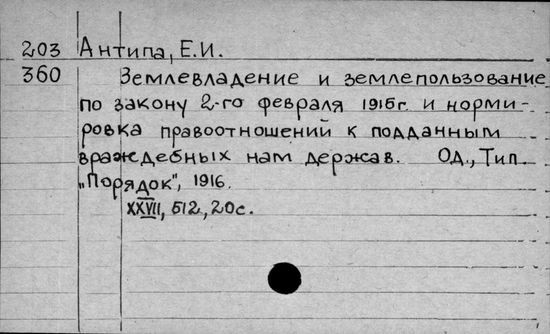 203 Антипа, Е.И.
360 Землевладение и землепользование
по закону 2-го февраля 1915г. и норми-
ровка правоотношений к подданным
враждебных нам держав. Од., Тип.
„Порядок", 1916.
XXVII, 512, 20с.